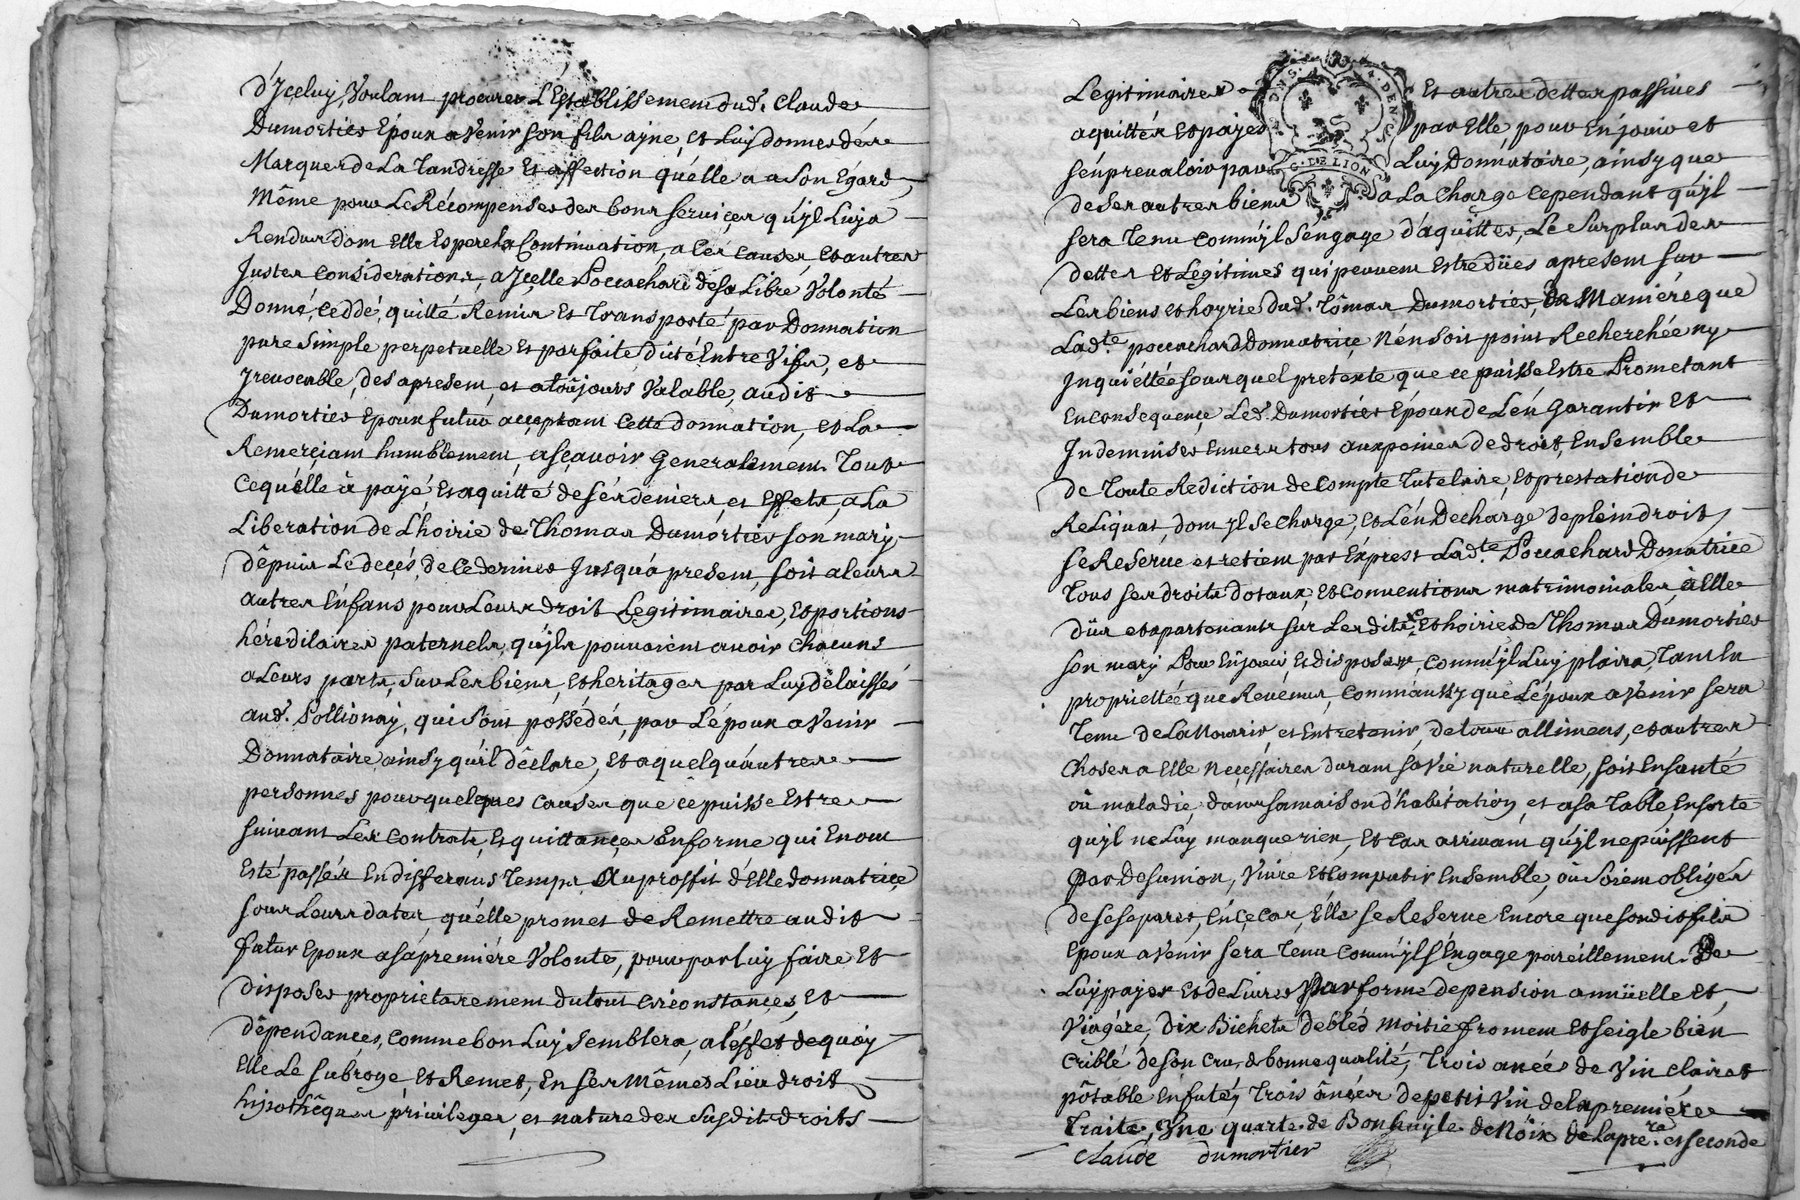 d'Jceluy, Voulant procurer L'Establissement dud. Claude
Dumortier Epoux avenir son fils ayne, et Luy donner dése
Marques de La Tandresse Et affection qu'elle a a son Egard,
Même pour Le Récompenser des bons services qu'yl Luy a
Rendus dont Elle Espere la Continuation, a Cés causes, et autres
Justes Considerations, a Jcelle Poccachard desa Libre Volonté
Donné, Ceddé, quitté Remis Et Transporté par Donnation
pure simple perpetuelle Et parfaite ditte Entre Vifs, et
Jrevocable, des apresent, et atoûjours Valable, audit
Dumortier Epoux futur acceptant Cette donnation, et La
Remerciant humblement, asçavoir Generalement Tout
Cequ'elle à payé, Et aquitté de sés deniers, et Effets, a La
Liberation de L'hoirie de Thomas Dumortier son mary
dépuis Le decés, de Ce dernier Jusqu'á present, soit a leurs
autres Enfans pour Leurs droit Legitimaires, Et portions
héreditaires paternels, qu'yls pouvoient avoir chacuns
a Leurs parts, sur Les biens, et heritages par Luy délaissés
aud. Pollionay, qui sont possédés, par L'époux a Venir
Donnataire, ainsy qu'il déclare, Et aquelqu'autres
personnes pour quelques causes que ce puisse Estre
suivant Les Contrats, Et quittances En forme qui En ont
Esté passés En differans Temps Au proffit d'Elle donnatrice
sous Leurs dates, qu'elle promet de Remettre audit
futur Epoux asa première Volonté, pour par Luy faire Et
disposer proprietairement du tout circonstances, Et
dépendances, Comme bon Luy semblera, a l'effet de quoy
Elle Le subroge Et Remet, En ses Mêmes Lieu droit
hipothêques privileges, et nature des Susdits droits
Legitimaires Et autres dettes passives
aquittés Et payés par Elle, pour En joüir et
s'en prevaloir par Luy Donnataire, ainsy que
de ses autres biens a La Charge Cependant qu'yl
sera Tenu Comm'yl s'engage d'aquitter, Le surplus des
dettes Et Legitimes qui peuvent Estre dües apresent sur
Les biens et hoyrie dud. Tômas Dumortier, De Maniére que
Lad.te poccachard Donnatrice N'en soit point Recherchée ny
Jnquiéttée sous quel pretexte que ce puisse Estre Prometant
En Consequence Led. Dumortier Epoux de L'en Garantir Et
Jndemniser Envers tous aux peines de droit, Ensemble
de Toute Rediction de Compte Tutelaire, Et prestation de
Reliquat, dont yl se Charge, et L'en Decharge de plein droit,
se Reserve et retient par Exprest Lad.te Poccachard Donatrice
Tous ses droits dotaux, Et Conventions matrimoniales, à Elle
dûs et apartenants sur Les dits Et hoiries de Thomas Dumortier
son mary Pour En joüir, Et disposer, Comm'yl Luy plaira, Tant En
proprietée que Revenus, Comm'aussy que L'époux a Venir sera
Tenu de La Nourir, et Entretenir, de tous allimens, et autres
Choses a Elle Necessaires durant sa Vie naturelle, soit En santé
oû maladie, dans sa maison d'habitation, et a sa Table, En sorte
qu'yl ne Luy manque rien, Et cas arrivant qu'yl ne puissent
Par Desunion, Vivre Et Compatir Ensemble, oû soient obligés
de se separer, En ce Cas, Elle se Reserve Encore que sondit fils
Epoux avenir sera Tenu Comm'yl s'Engage pareillement De
Luy payer et deLivrer Par forme de pension annüelle Et,
Viagére, Dix Bichets de bled Moitié froment Et seigle bien
Criblé de son Cru, & bonne qualité, Trois anées de Vin Clairet
pôtable En futé, Trois ânées de petit Vin de la premiére
Traite, Une quarte de Bon huyle de Nôix de la pre.re et seconde
Claude dumortier
G. DE LION